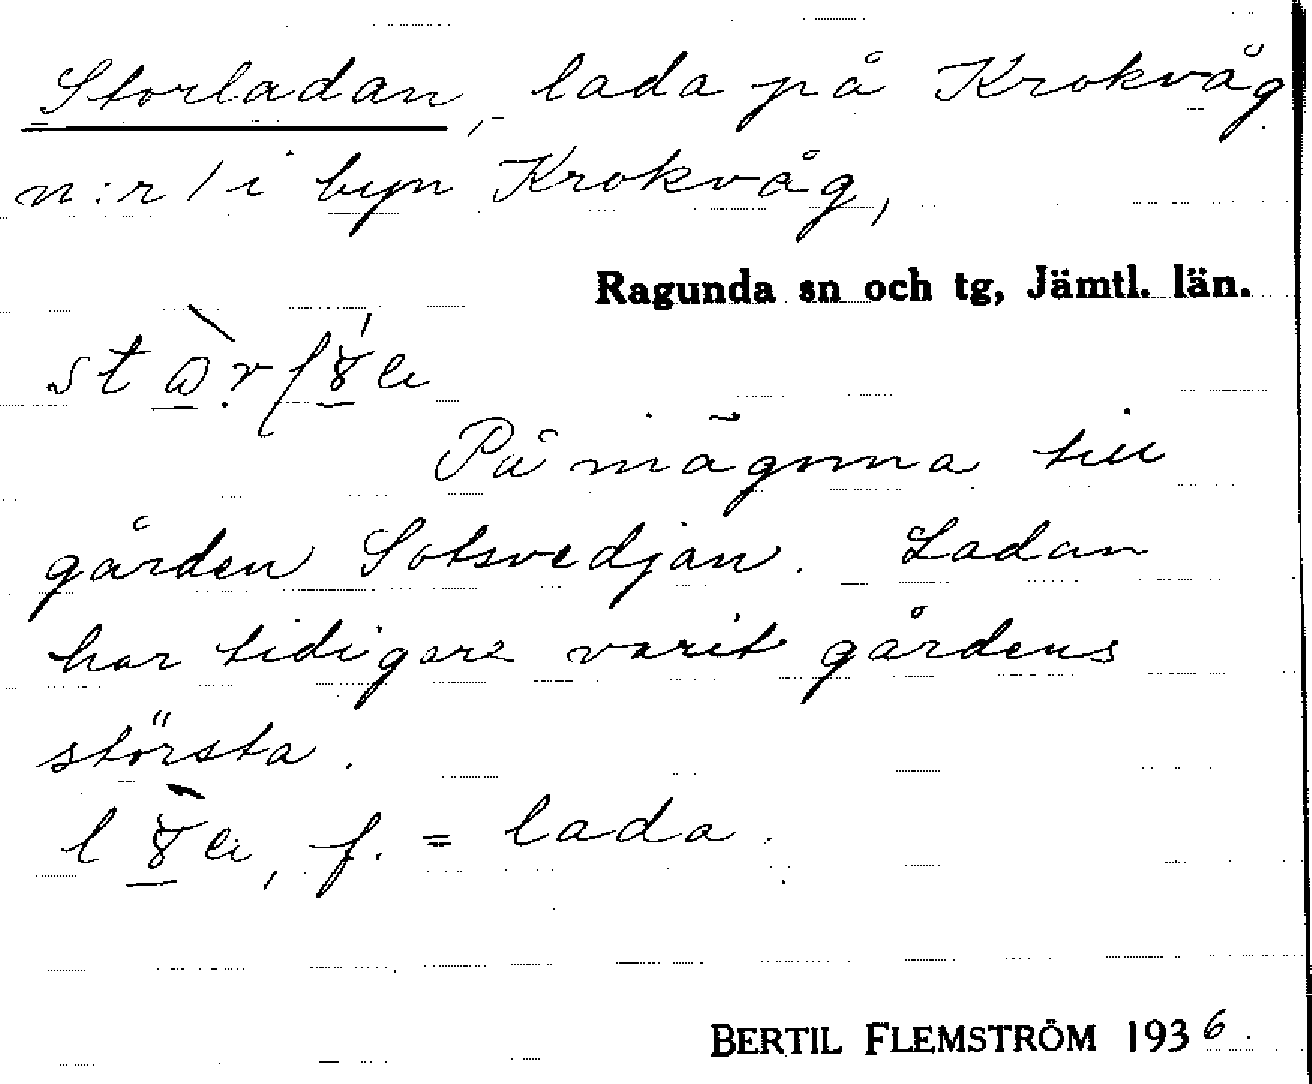 Storladan, lada på Krokvåg
n:r 1 i byn Krokvåg,
Ragunda sn och tg, Jämtl. län.
På mägnna till
gården Sotsvedjan. Ladan
har tidigare varit gårdens
största.
f. = lada.
BERTIL FLEMSTRÖM 1936.